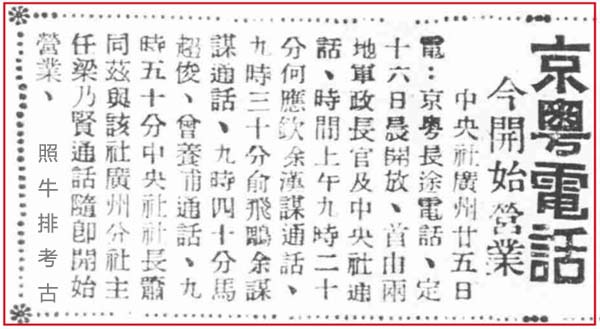 京粵電話
今開始營業
中央社廣州廿五日
電：京粵長途電話、定
十六日晨開放、首由兩
地軍政長官及中央社連
話、時間上午九時二十
分何應欽余漢謀通話、
九時三十分俞飛鵬余謀
謀通話、九時四十分馬
超俊、曾養甫通話、九
時五十分中央社社長蕭
同茲與該社廣州分社主
任梁乃賢通話隨即開始
營業、
照牛排考古